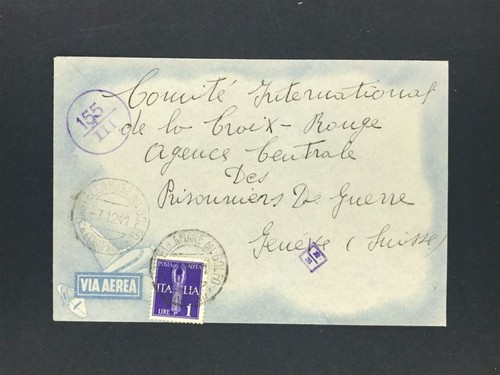 Comité International
de la Croix-Rouge
Agence Centrale
Des
Prisonniers De Guerre
Genève (Suisse)
155
III
-7.12.41
VIA AEREA
POSTA AEREA
ITALIA
LIRE 1